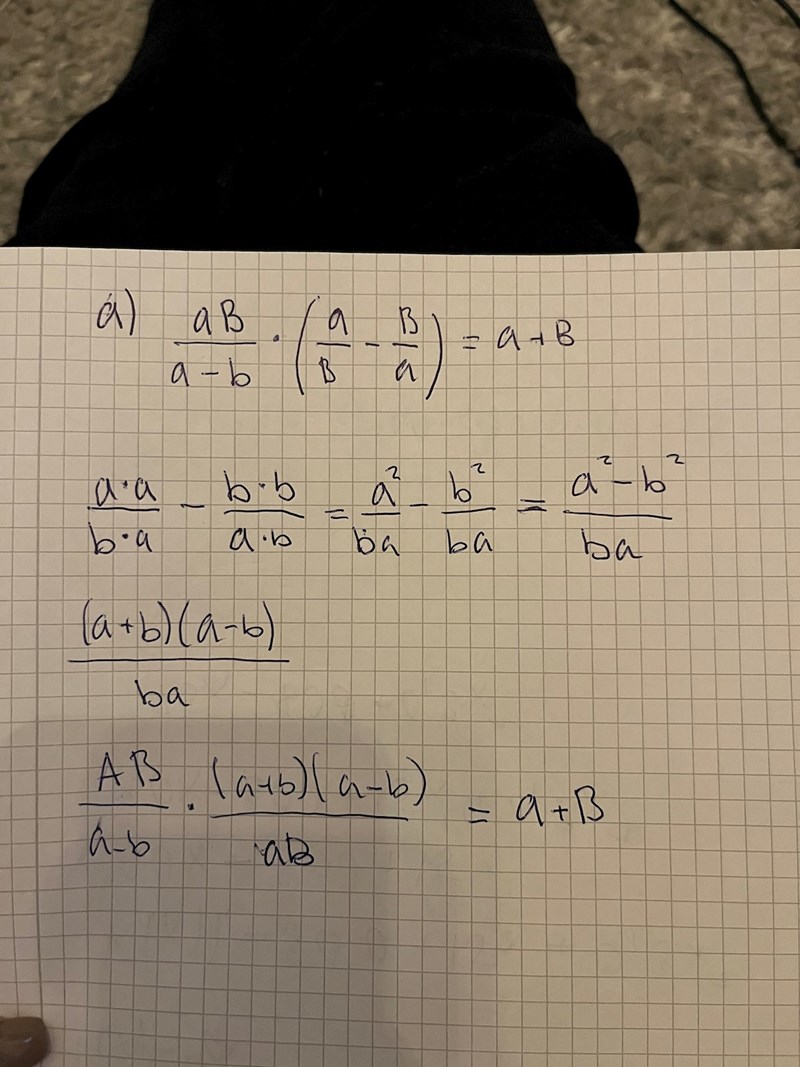 a) aB/(a-b) · (a/B - B/a) = a+B
a·a/b·a - b·b/a·b = a²/ba - b²/ba = (a²-b²)/ba
(a+b)(a-b)/ba
AB/(a-b) · (a+b)(a-b)/aB = a+B